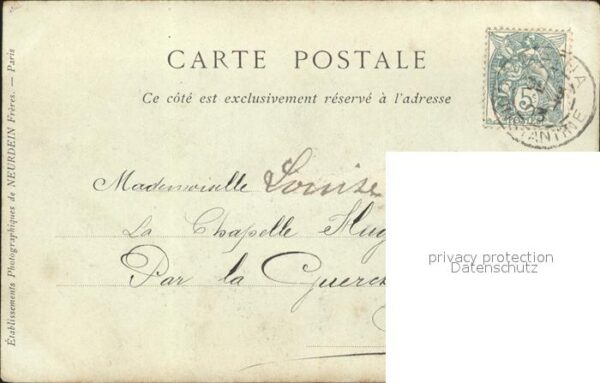 CARTE POSTALE
Ce côté est exclusivement réservé à l'adresse
Mademoiselle Louise
La Chapelle Hug
Par la Guerch
privacy protection
Datenschutz
Établissements Photographiques de NEURDEIN Frères. — Paris
5